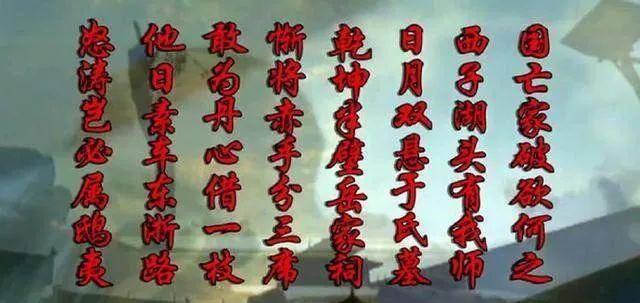 国亡家破欲何之
西子湖头有我师
日月双悬于氏墓
乾坤半壁岳家祠
惭将赤手分三席
敢为丹心借一枝
他日素车东浙路
怒涛岂必属鸱夷